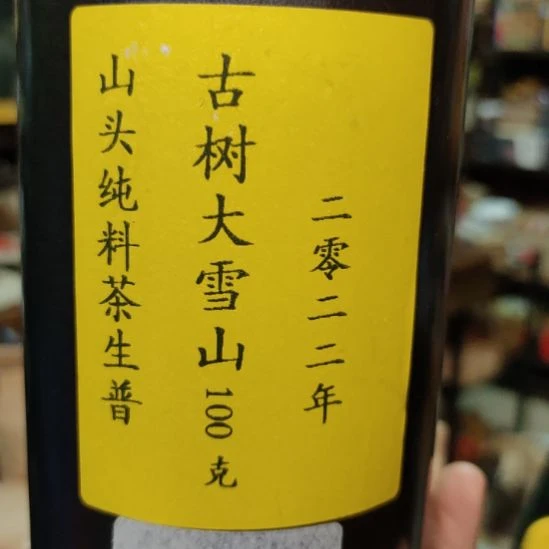 二零二二年
古树大雪山100克
山头纯料茶生普